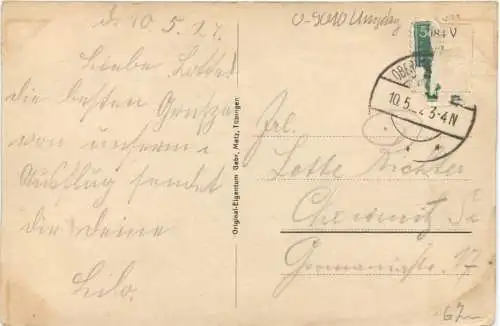 d. 10.5.27.
Liebe Lotte!
die besten Grüße
von unserm
Ausflug sendet
dir deine
Lilo.
Original-Eigentum Gebr. Metz, Tübingen
10.5. 3-4 N
Frl.
Lotte Richter
Chemnitz Sa
Germaniastr. 17
67